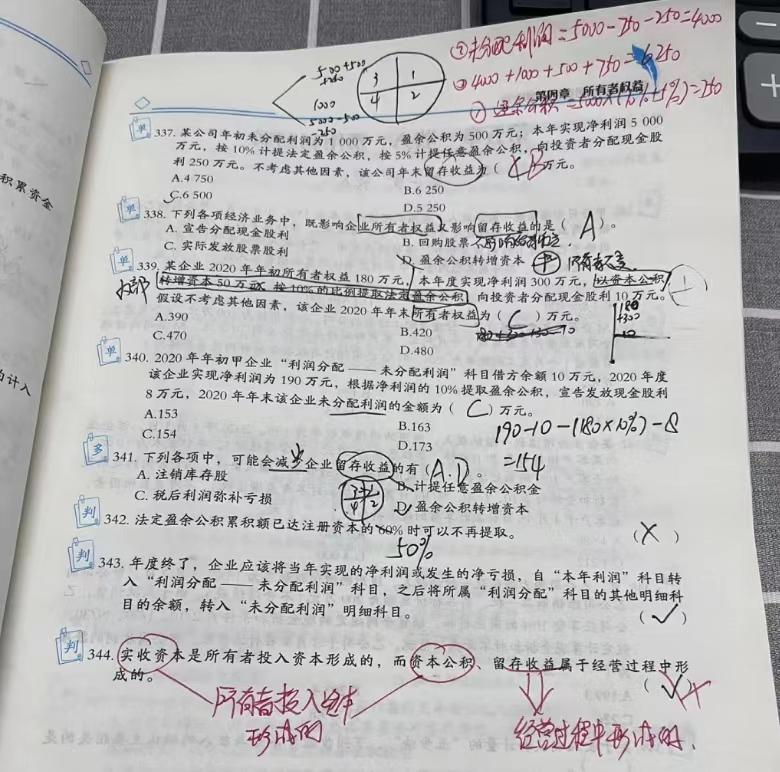 ②未分配利润=5000-750-250=4000
③4000+1000+500+750=6250
①盈余公积=5000×(10%+5%)=750
500+500
+250
1000
5000-500
-250
3 1
4 2
第四章 所有者权益
积累资金
的计入
单 337. 某公司年初未分配利润为1 000万元,盈余公积为500万元;本年实现净利润5 000
万元,按10%计提法定盈余公积,按5%计提任意盈余公积,向投资者分配现金股
利250万元。不考虑其他因素,该公司年末留存收益为( B )万元。
A.4 750 B.6 250
C.6 500 D.5 250
单 338. 下列各项经济业务中,既影响企业所有者权益又影响留存收益的是( A )。
A. 宣告分配现金股利 B. 回购股票
C. 实际发放股票股利 D. 盈余公积转增资本
单 339. 某企业2020年年初所有者权益180万元,本年度实现净利润300万元,以资本公积
内部
转增资本50万元,按10%的比例提取法定盈余公积,向投资者分配现金股利10万元。
假设不考虑其他因素,该企业2020年年末所有者权益为( C )万元。
A.390 B.420
C.470 D.480
180
+300
10
单 340. 2020年年初甲企业“利润分配——未分配利润”科目借方余额10万元,2020年度
该企业实现净利润为190万元,根据净利润的10%提取盈余公积,宣告发放现金股利
8万元,2020年年末该企业未分配利润的金额为( C )万元。
A.153 B.163
C.154 D.173
190-10-(180×10%)-8
=154
多 341. 下列各项中,可能会减少企业留存收益的有( A.D )。
A. 注销库存股 B. 计提任意盈余公积金
C. 税后利润弥补亏损 D. 盈余公积转增资本
3 1
4 2
判 342. 法定盈余公积累积额已达注册资本的60%时可以不再提取。 ( × )
50%
判 343. 年度终了,企业应该将当年实现的净利润或发生的净亏损,自“本年利润”科目转
入“利润分配——未分配利润”科目,之后将所属“利润分配”科目的其他明细科
目的余额,转入“未分配利润”明细科目。 ( ✓ )
判 344. 实收资本是所有者投入资本形成的,而资本公积、留存收益属于经营过程中形
成的。 ( ✓ ) ×
所有者投入资本
形成的
经营过程中形成的.